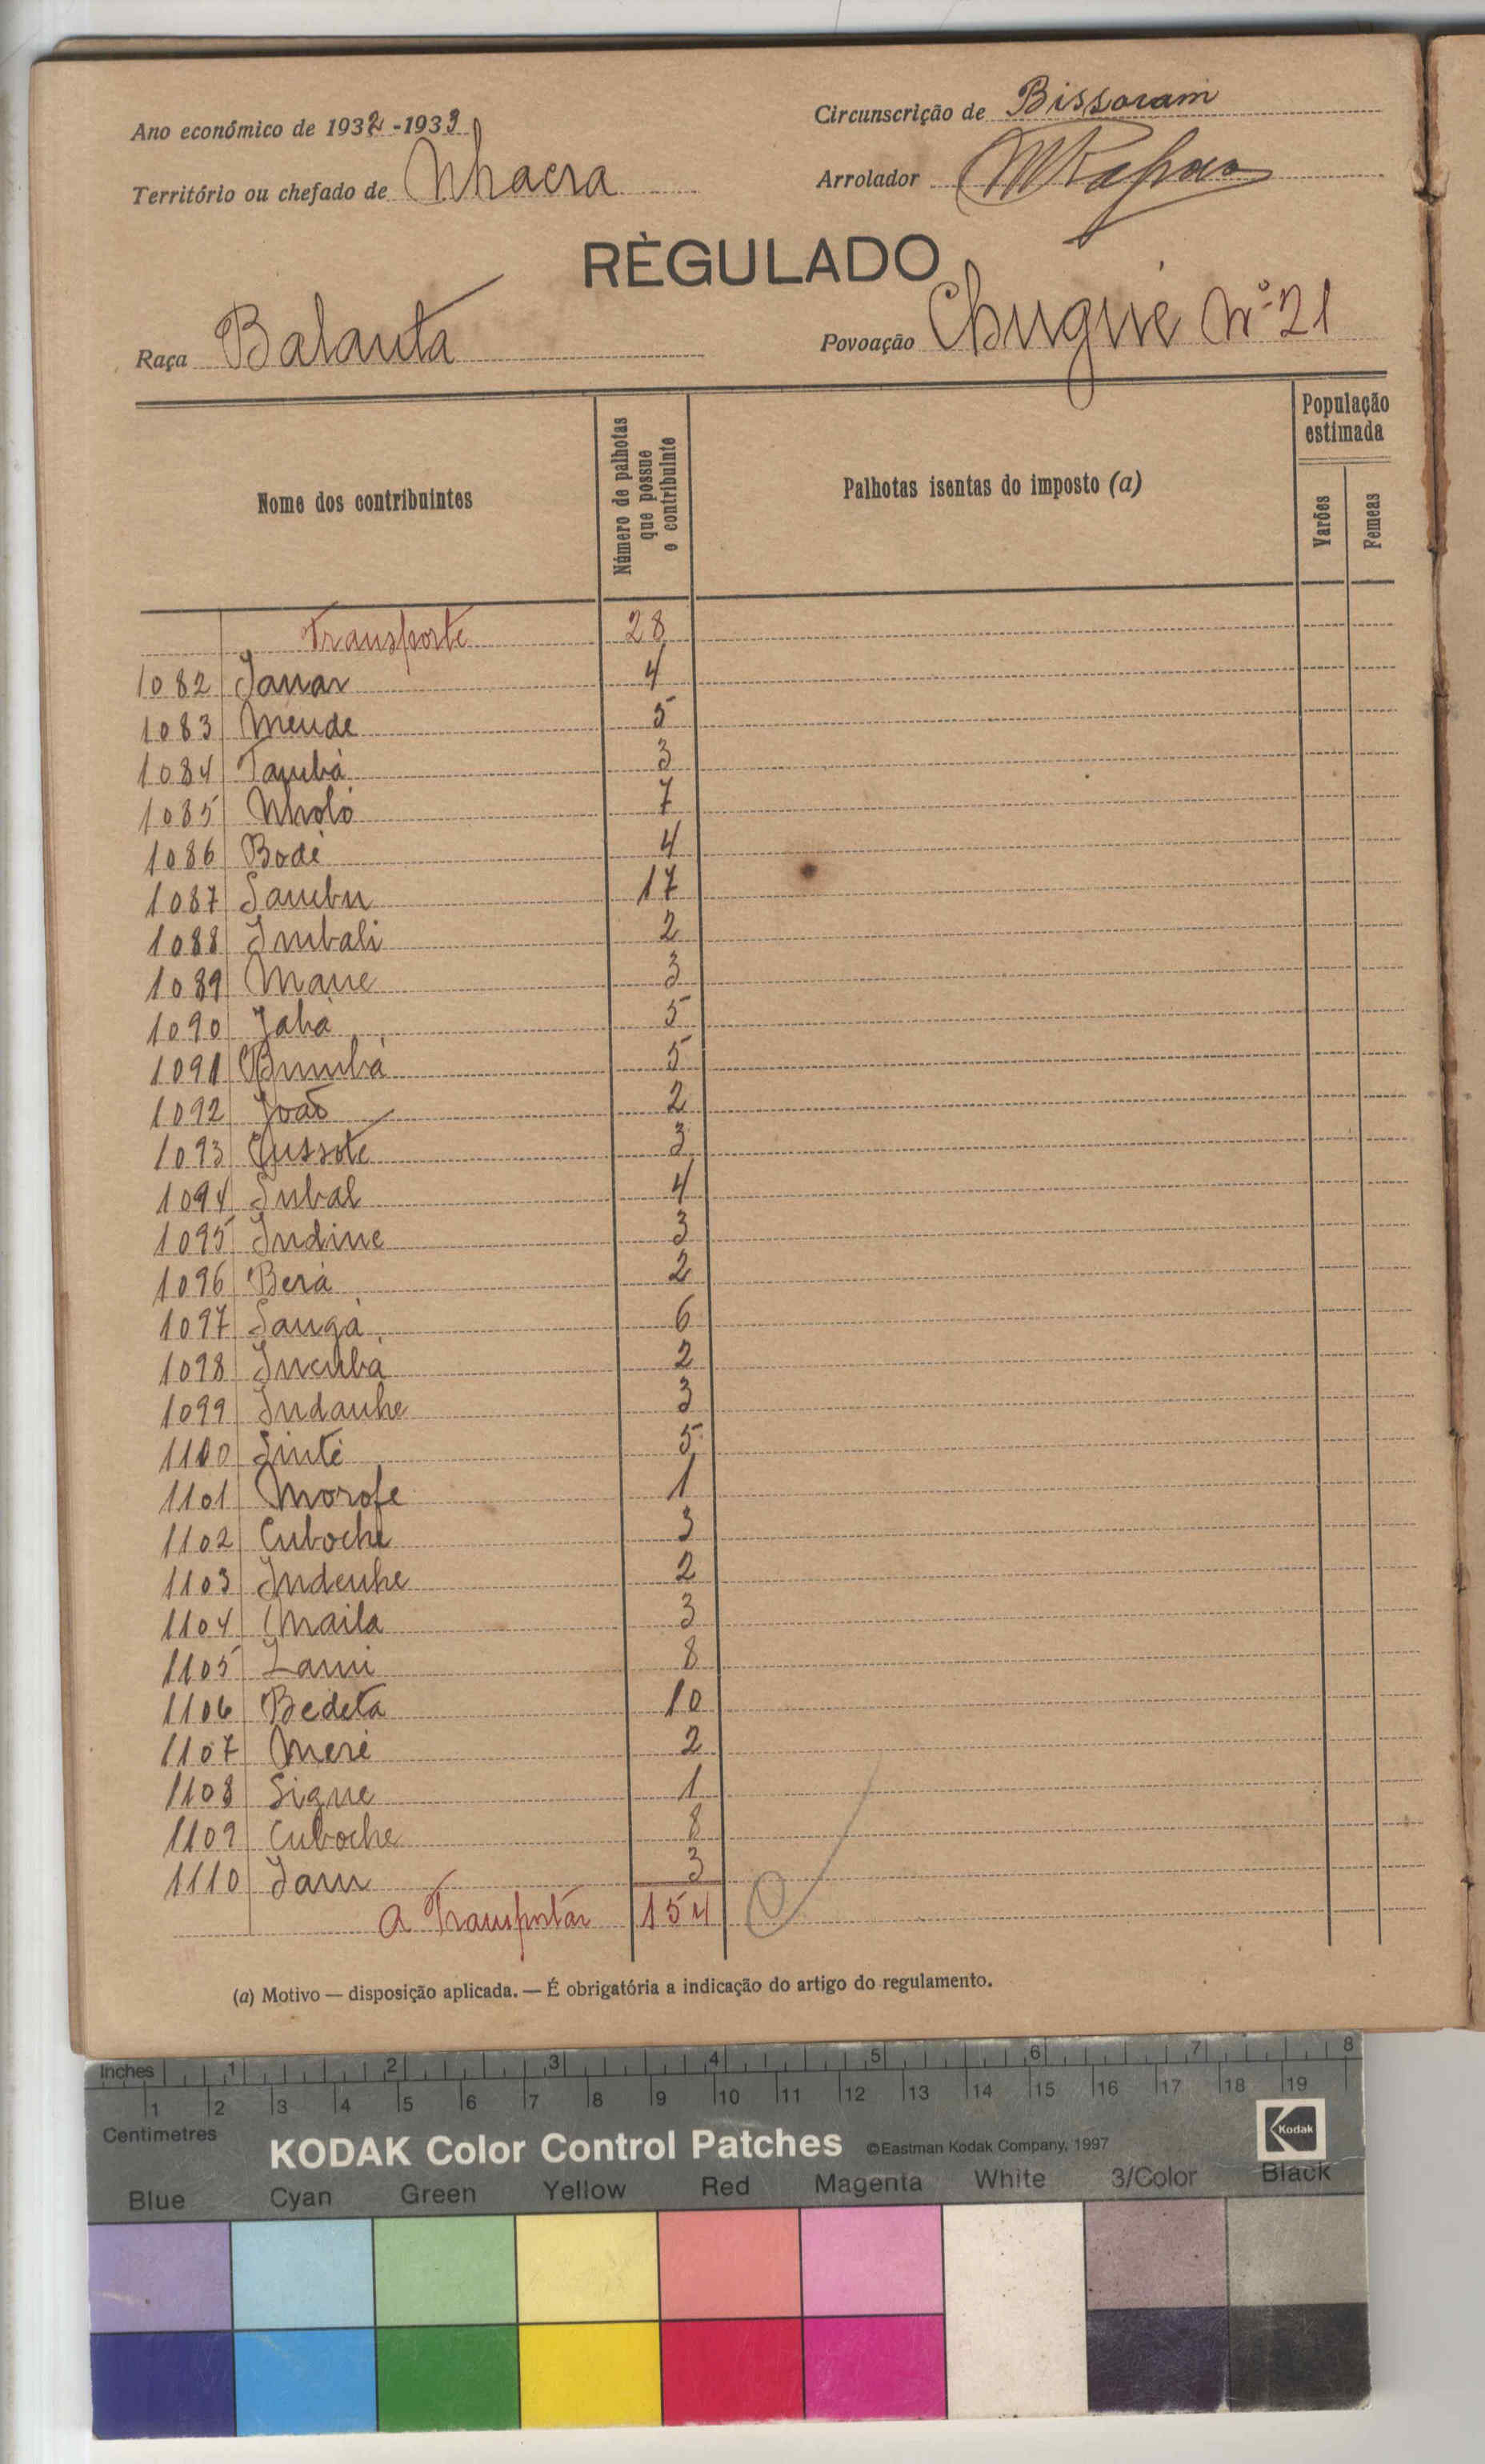 Ano económico de 1932-1933
Circunscrição de Bissoram
Território ou chefado de Nhacra
Arrolador
RÈGULADO
Raça Balanta
Povoação Chugué Nº 21
Nome dos contribuintes
Número de palhotas que possue o contribuinte
Palhotas isentas do imposto (a)
População estimada
Varões
Femeas
Transporte 28
1082 Janar 4
1083 Mende 5
1084 Tambá 3
1085 Nholó 7
1086 Bodé 4
1087 Sambu 17
1088 Imbali 2
1089 Mane 3
1090 Jahá 5
1091 Bumbá 5
1092 João 2
1093 Qussote 3
1094 Subal 4
1095 Indine 3
1096 Berá 2
1097 Sangá 6
1098 Incubá 2
1099 Indanhe 3
1100 Sinté 5
1101 Morofe 1
1102 Cuboche 3
1103 Indenhe 2
1104 Maila 3
1105 Lami 8
1106 Bedeta 10
1107 Meré 2
1108 Signe 1
1109 Cuboche 8
1110 Jam 3
A Transportar 154
(a) Motivo — disposição aplicada. — É obrigatória a indicação do artigo do regulamento.
Inches 1 2 3 4 5 6 7 8
1 2 3 4 5 6 7 8 9 10 11 12 13 14 15 16 17 18 19
Centimetres
KODAK Color Control Patches ©Eastman Kodak Company, 1997 Kodak
Blue Cyan Green Yellow Red Magenta White 3/Color Black